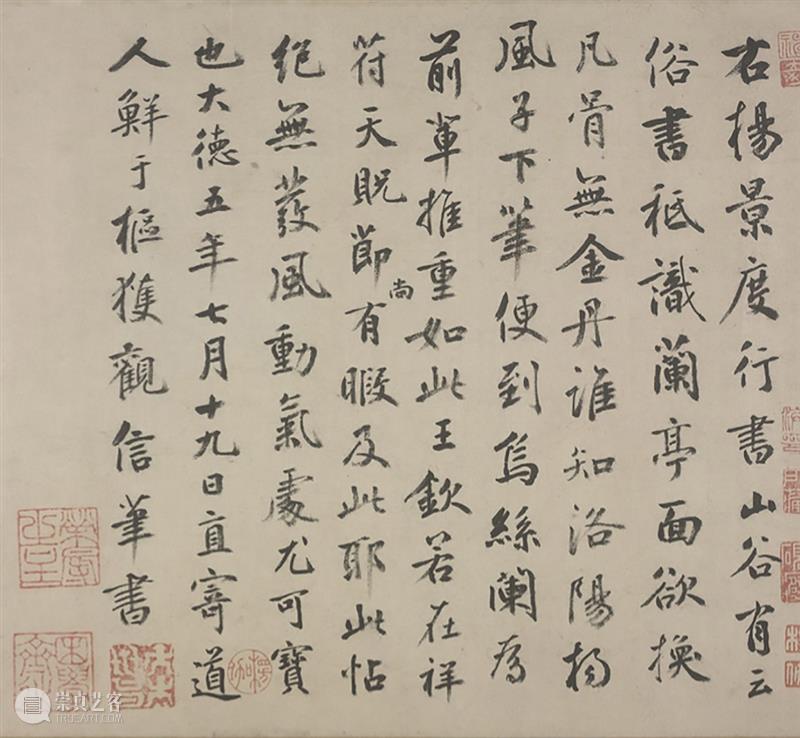 右楊景度行書山谷有云
俗書祗識蘭亭面欲換
凡骨無金丹誰知洛陽楊
風子下筆便到烏絲闌為
前輩推重如此王欽若在祥
符天貺節尚有暇及此耶此帖
絕無發風動氣處尤可寶
也大德五年七月十九日直寄道
人鮮于樞獲觀信筆書
崇真艺客
TRUEART.COM